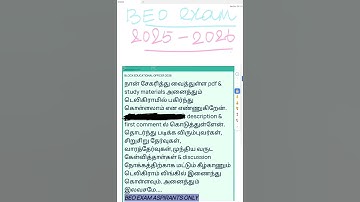 BEO exam
2025-2026
BLOCK EDUCATIONAL OFFICER 2026
நான் சேகரித்து வைத்துள்ள pdf &
study materials அனைத்தும்
டெலிகிராமில் பகிர்ந்து
கொள்ளலாம் என எண்ணுகிறேன்.
description &
first comment ல் கொடுத்துள்ளேன்.
தொடர்ந்து படிக்க விரும்புவர்கள்,
சிறுசிறு தேர்வுகள்,
வாரந்தேர்வுகள்,முந்திய வருட
கேள்வித்தாள்கள் & discussion
நோக்கத்திற்காக மட்டும் கீழ்காணும்
டெலிகிராம் லிங்கில் இணைந்து
கொள்ளவும். அனைத்தும்
இலவசமே....
BEO EXAM ASPIRANTS ONLY